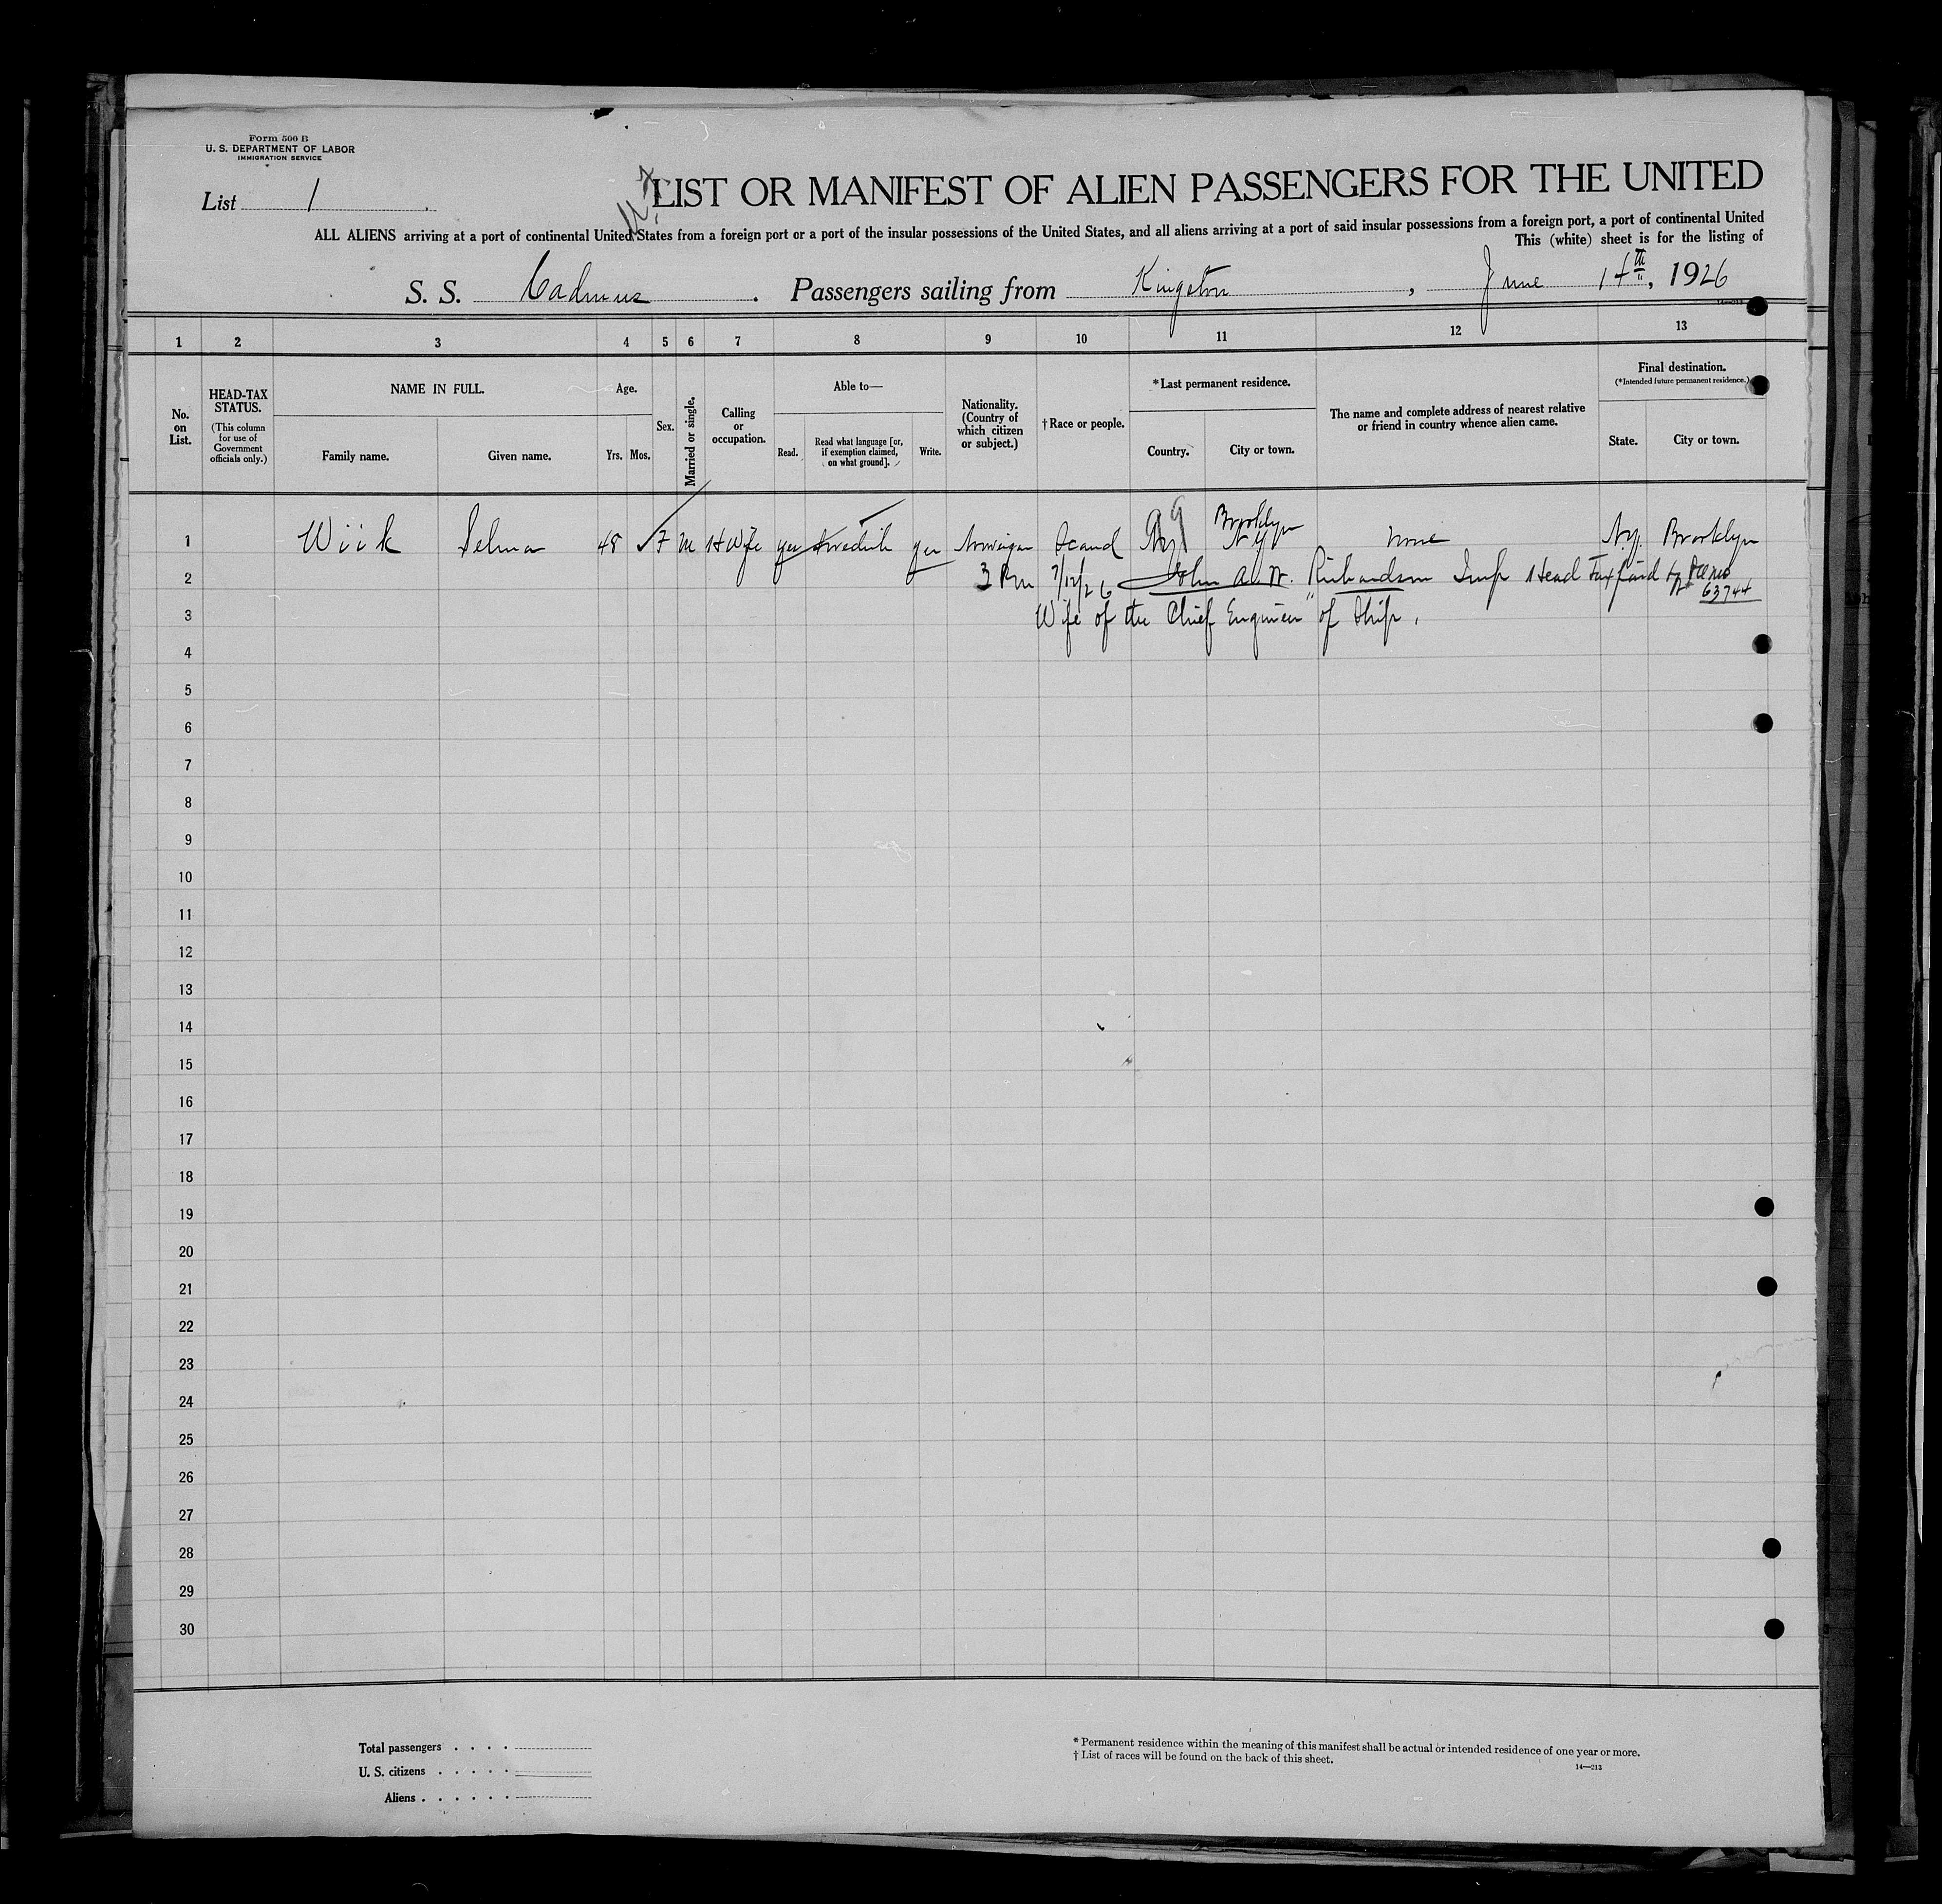 Form 500 B
U. S. DEPARTMENT OF LABOR
IMMIGRATION SERVICE
List 1
LIST OR MANIFEST OF ALIEN PASSENGERS FOR THE UNITED
ALL ALIENS arriving at a port of continental United States from a foreign port or a port of the insular possessions of the United States, and all aliens arriving at a port of said insular possessions from a foreign port, a port of continental United
This (white) sheet is for the listing of
S. S. Cadmus . Passengers sailing from Kingston , June 14th, 1926
1 2 3 4 5 6 7 8 9 10 11 12 13
No. on List.
HEAD-TAX STATUS.
(This column for use of Government officials only.)
NAME IN FULL.
Family name. Given name.
Age.
Yrs. Mos.
Sex.
Married or single.
Calling or occupation.
Able to—
Read. Read what language [or, if exemption claimed, on what ground]. Write.
Nationality. (Country of which citizen or subject.)
†Race or people.
*Last permanent residence.
Country. City or town.
The name and complete address of nearest relative or friend in country whence alien came.
Final destination.
(*Intended future permanent residence.)
State. City or town.
1 Wiik Selma 48 F M H Wife yes Swedish yes Norwegian Scand Brooklyn N Y none N.Y. Brooklyn
2 3 Pm 7/12/26 John A. W. Richardson Insp Head Tax paid by 63744
3 Wife of the "Chief Engineer" of Ship.
4
5
6
7
8
9
10
11
12
13
14
15
16
17
18
19
20
21
22
23
24
25
26
27
28
29
30
Total passengers . . . .
U. S. citizens . . . . .
Aliens . . . . . .
* Permanent residence within the meaning of this manifest shall be actual or intended residence of one year or more.
† List of races will be found on the back of this sheet.
14—213